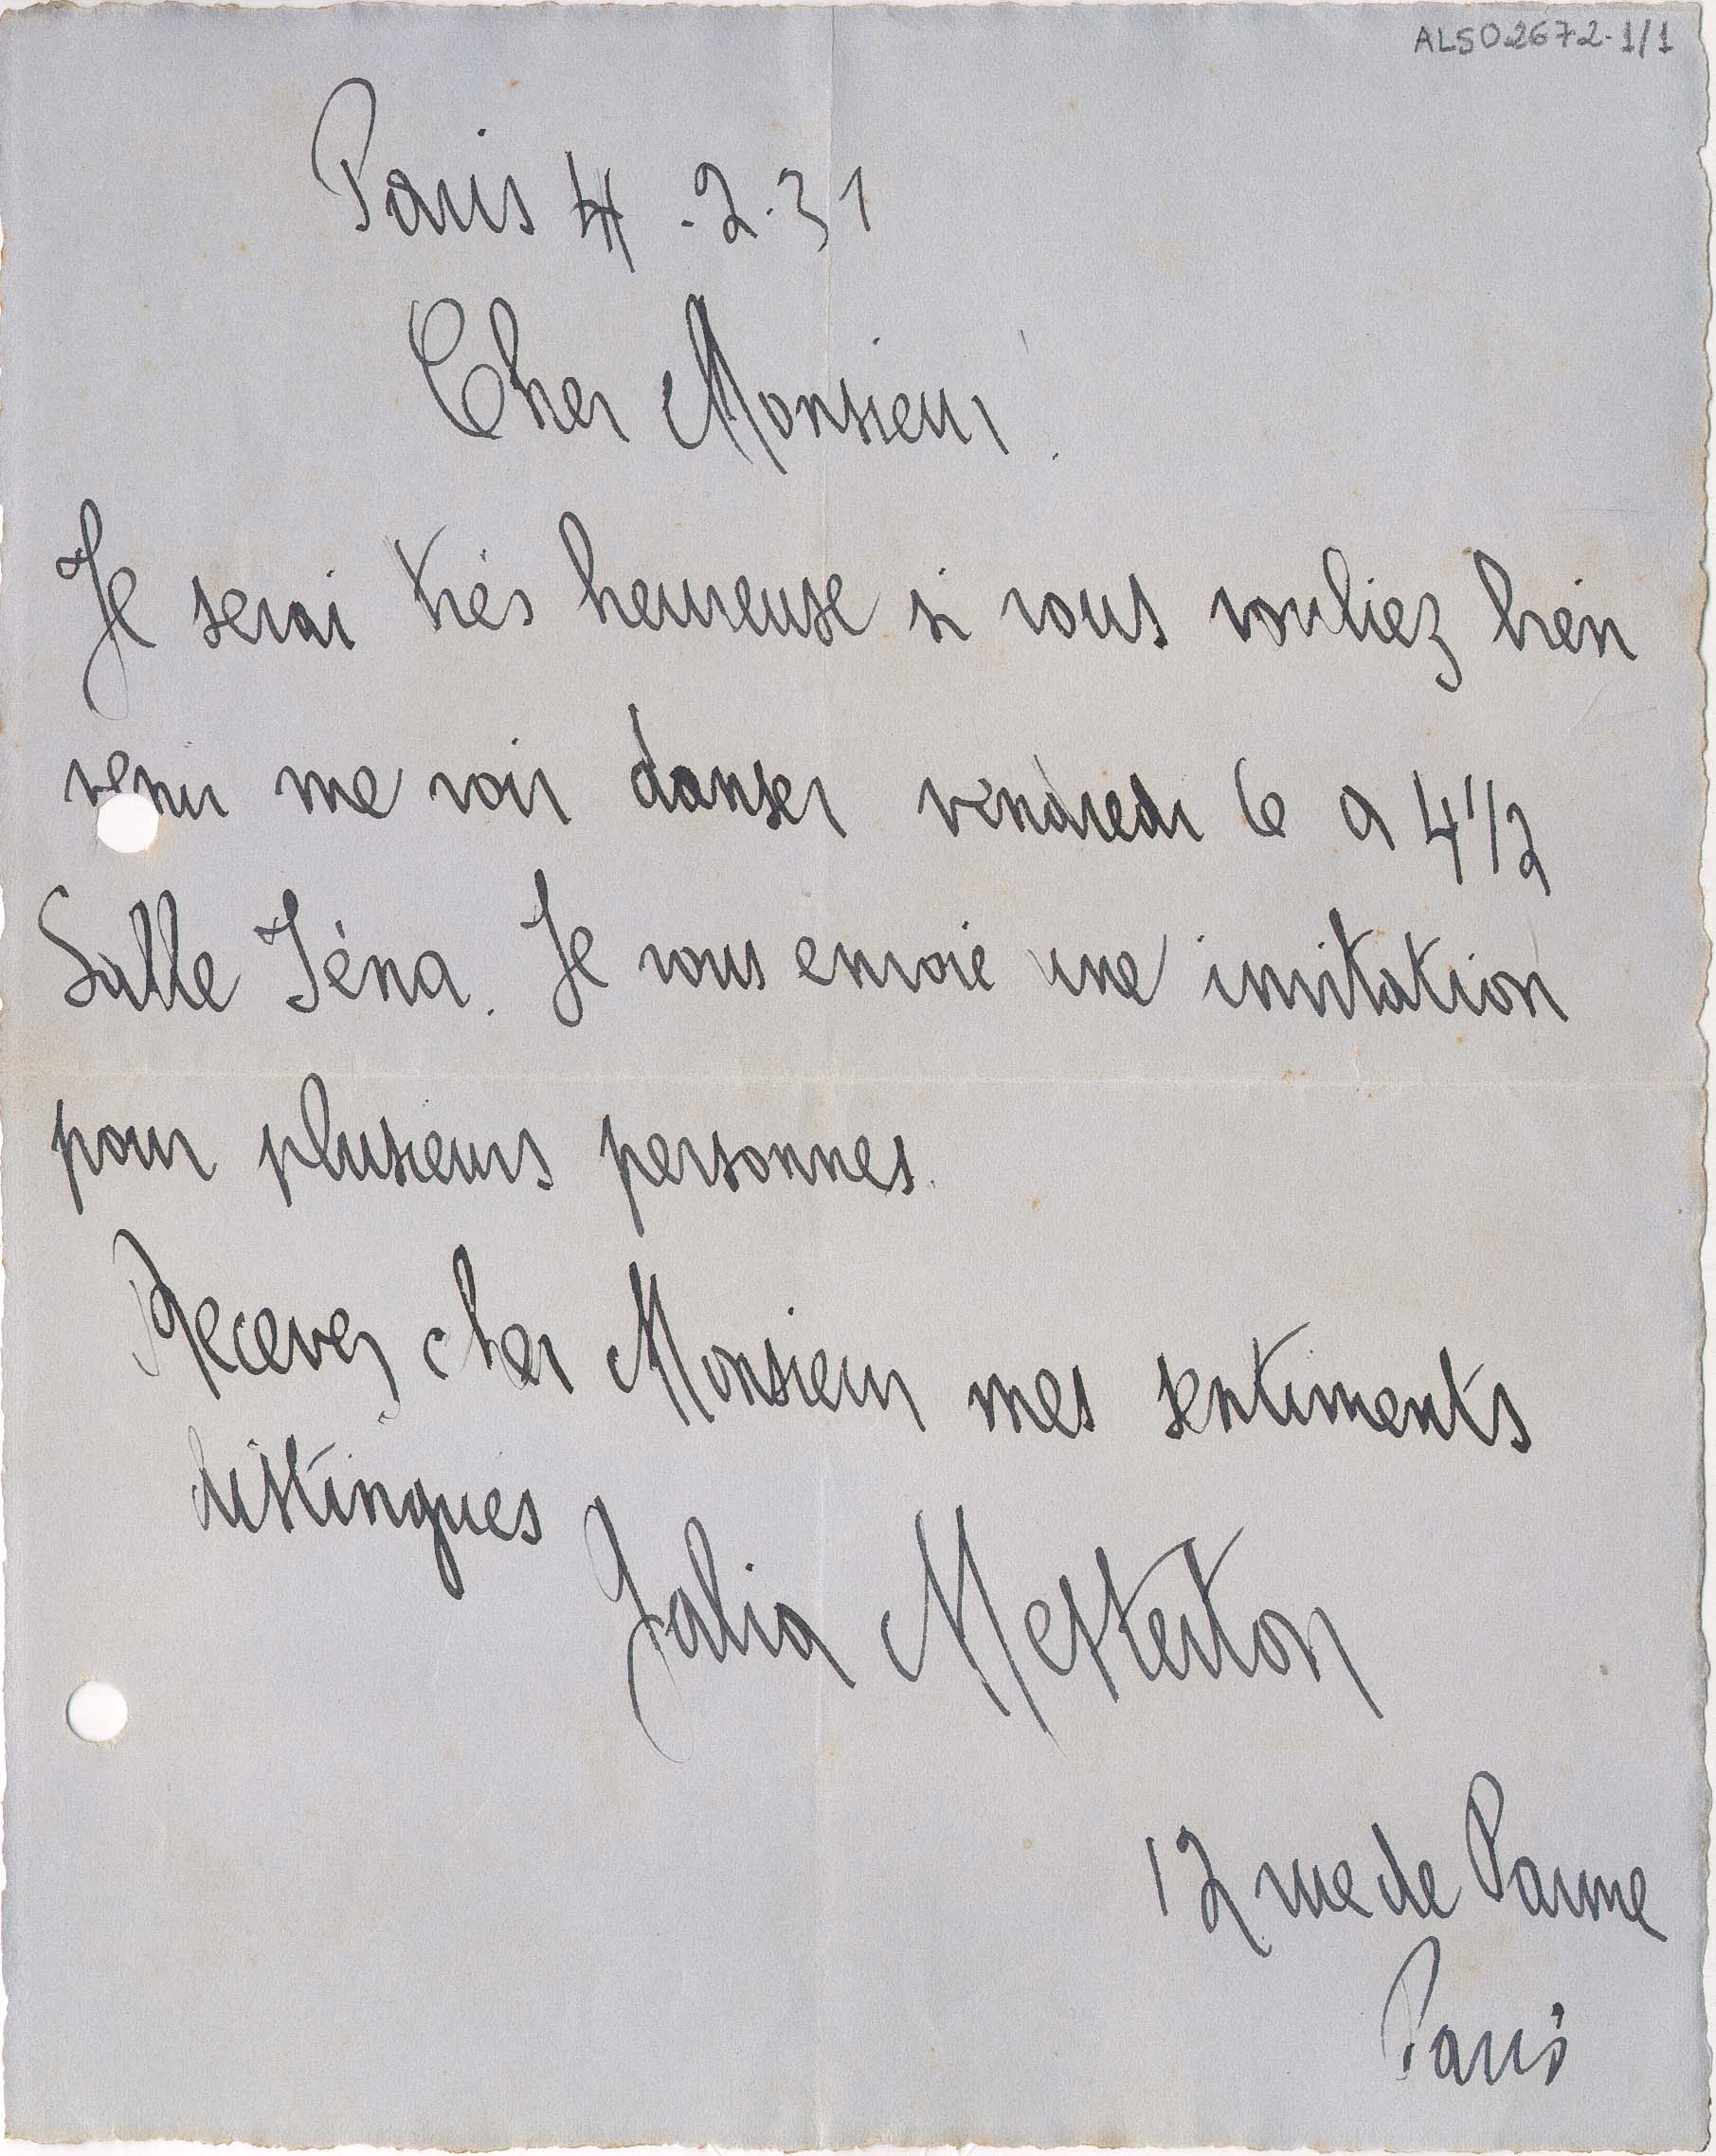 ALS02672-1/1
Paris 4 .2.31
Cher Monsieur.
Je serai très heureuse si vous vouliez bien
venir me voir danser vendredi 6 a 4 1/2
Salle Iéna. Je vous envoie une invitation
pour plusieurs personnes.
Recevez cher Monsieur mes sentiments
distingues
Jalia Mesterton
12 rue de Parme
Paris